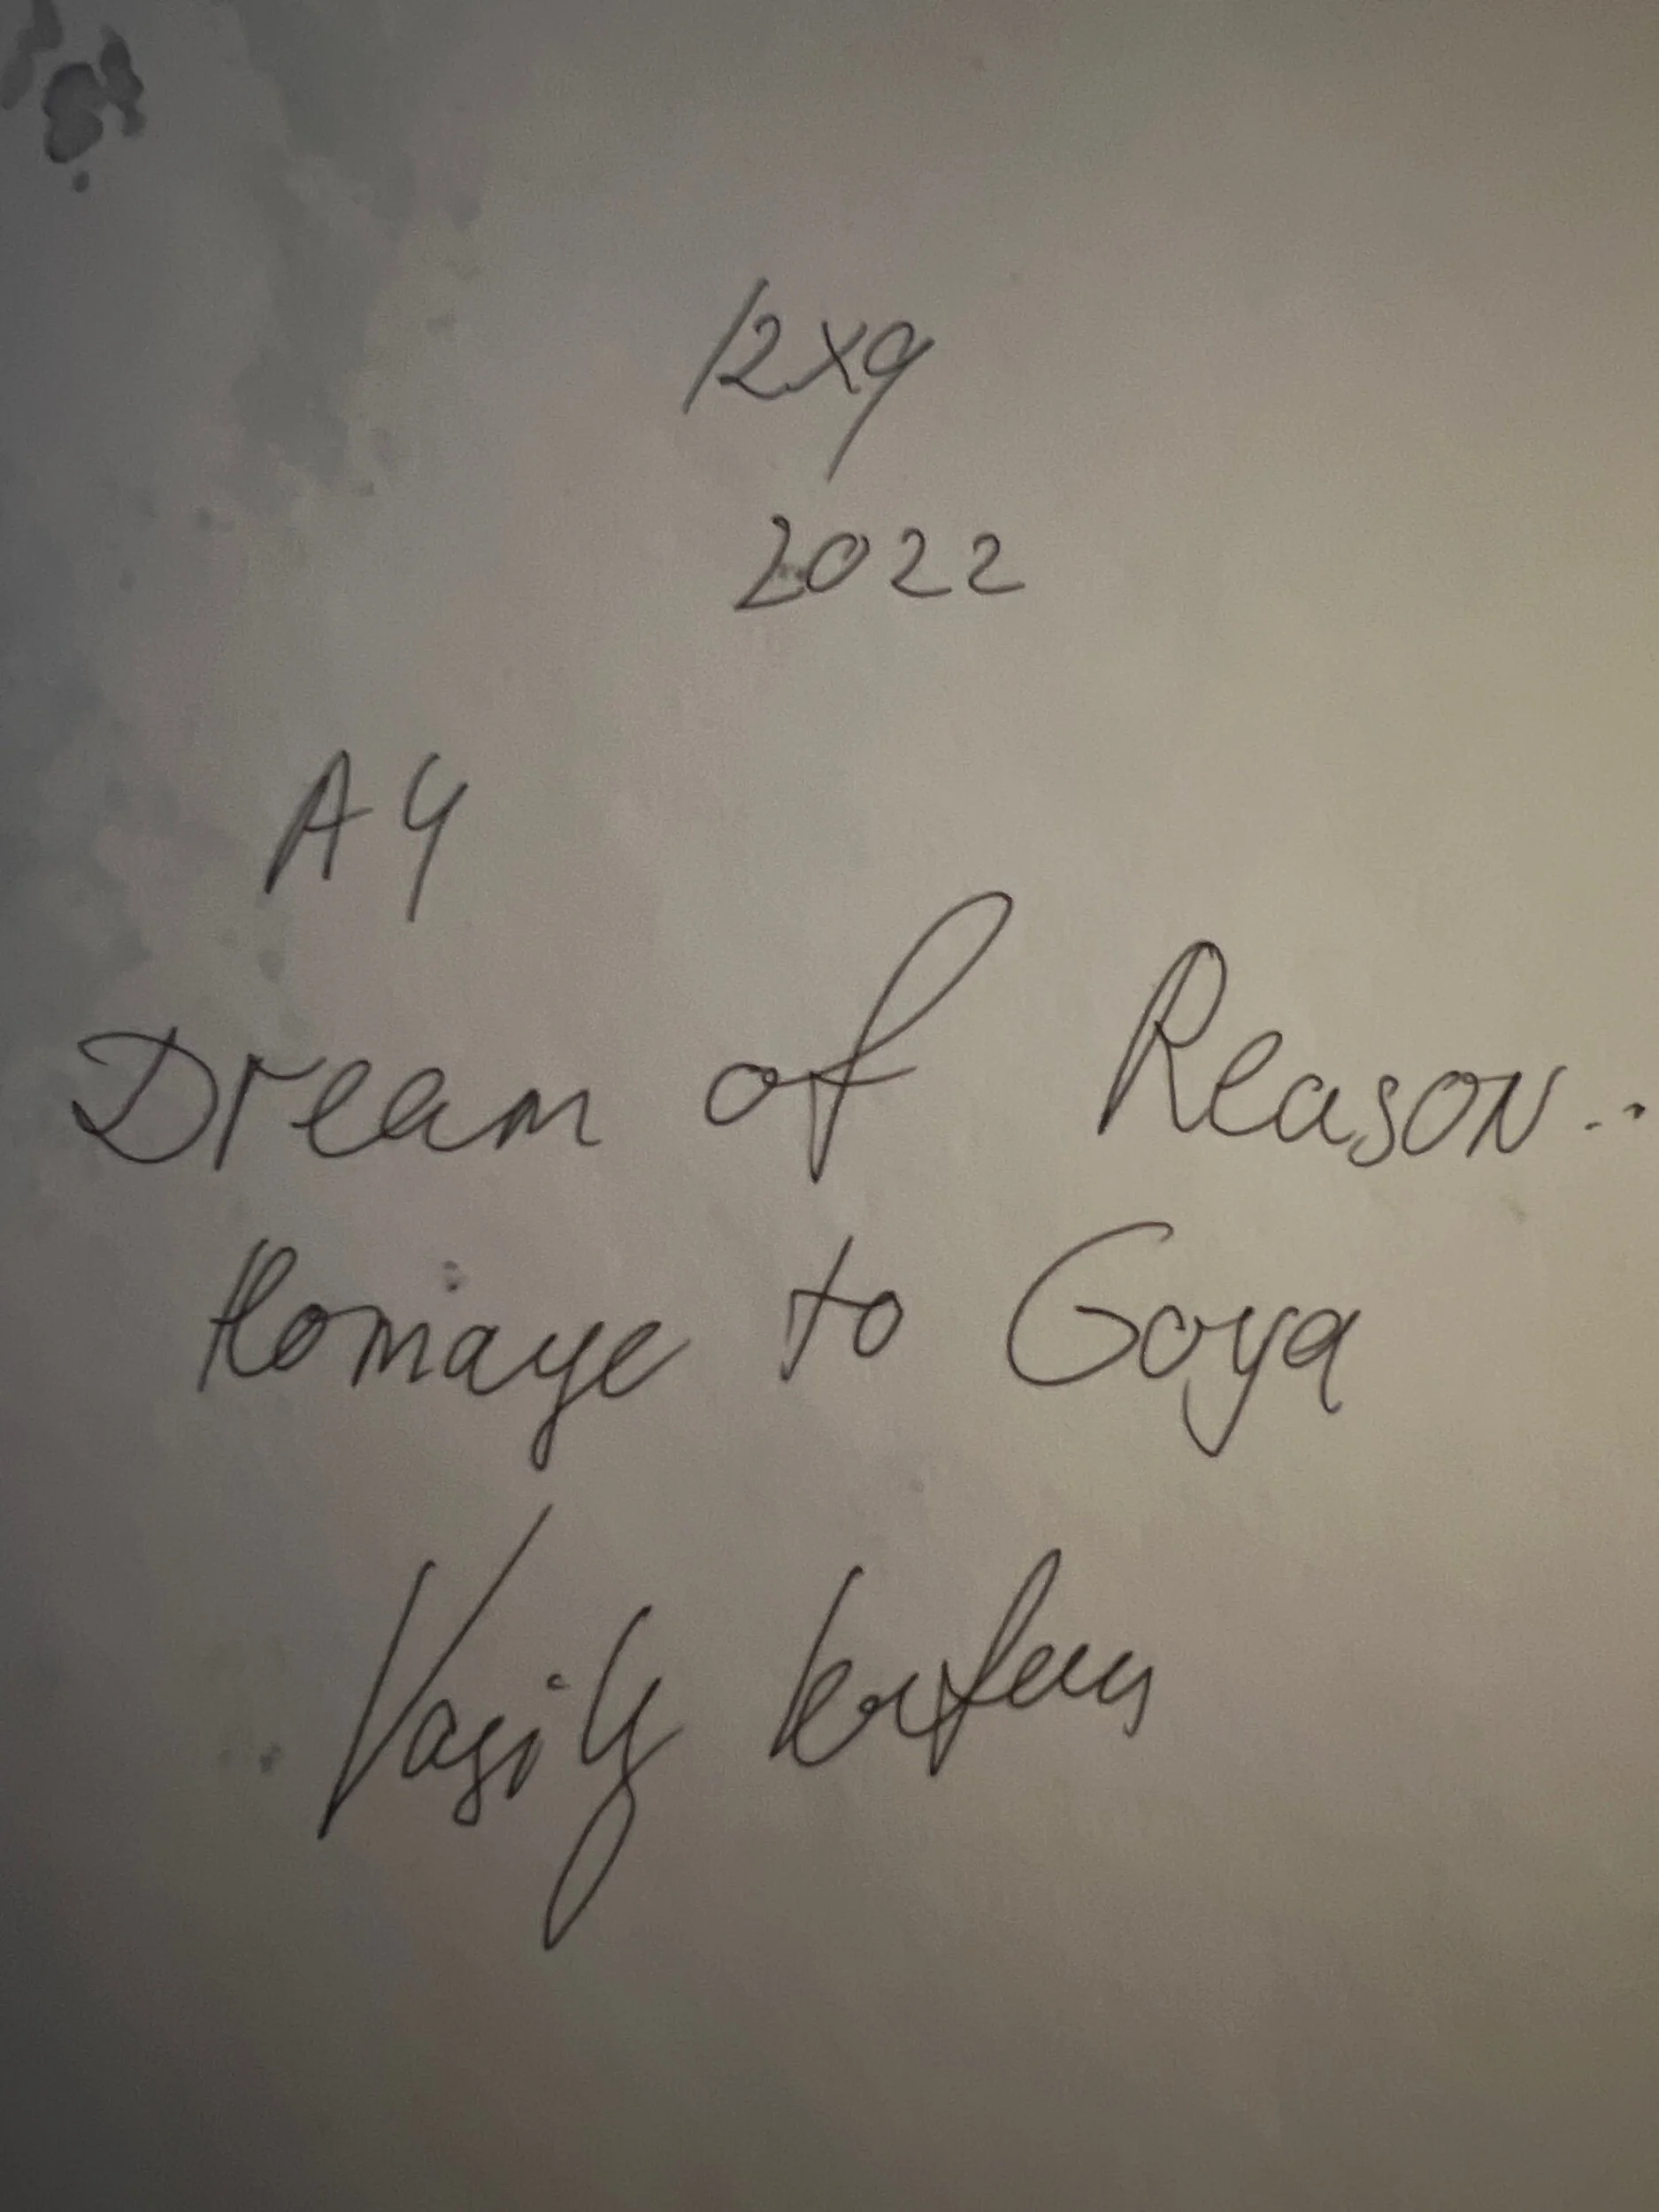 12x9
2022
A4
Dream of Reason..
Homage to Goya
Vasily